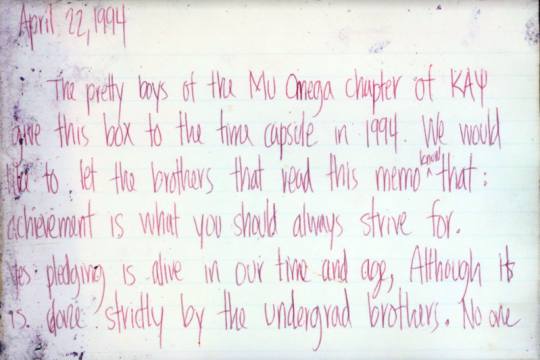 April 22, 1994
The pretty boys of the Mu Omega chapter of KAΨ
give this box to the time capsule in 1994. We would
like to let the brothers that read this memo know that:
achievement is what you should always strive for.
Yes pledging is alive in our time and age, Although its
is done strictly by the undergrad brothers. No one